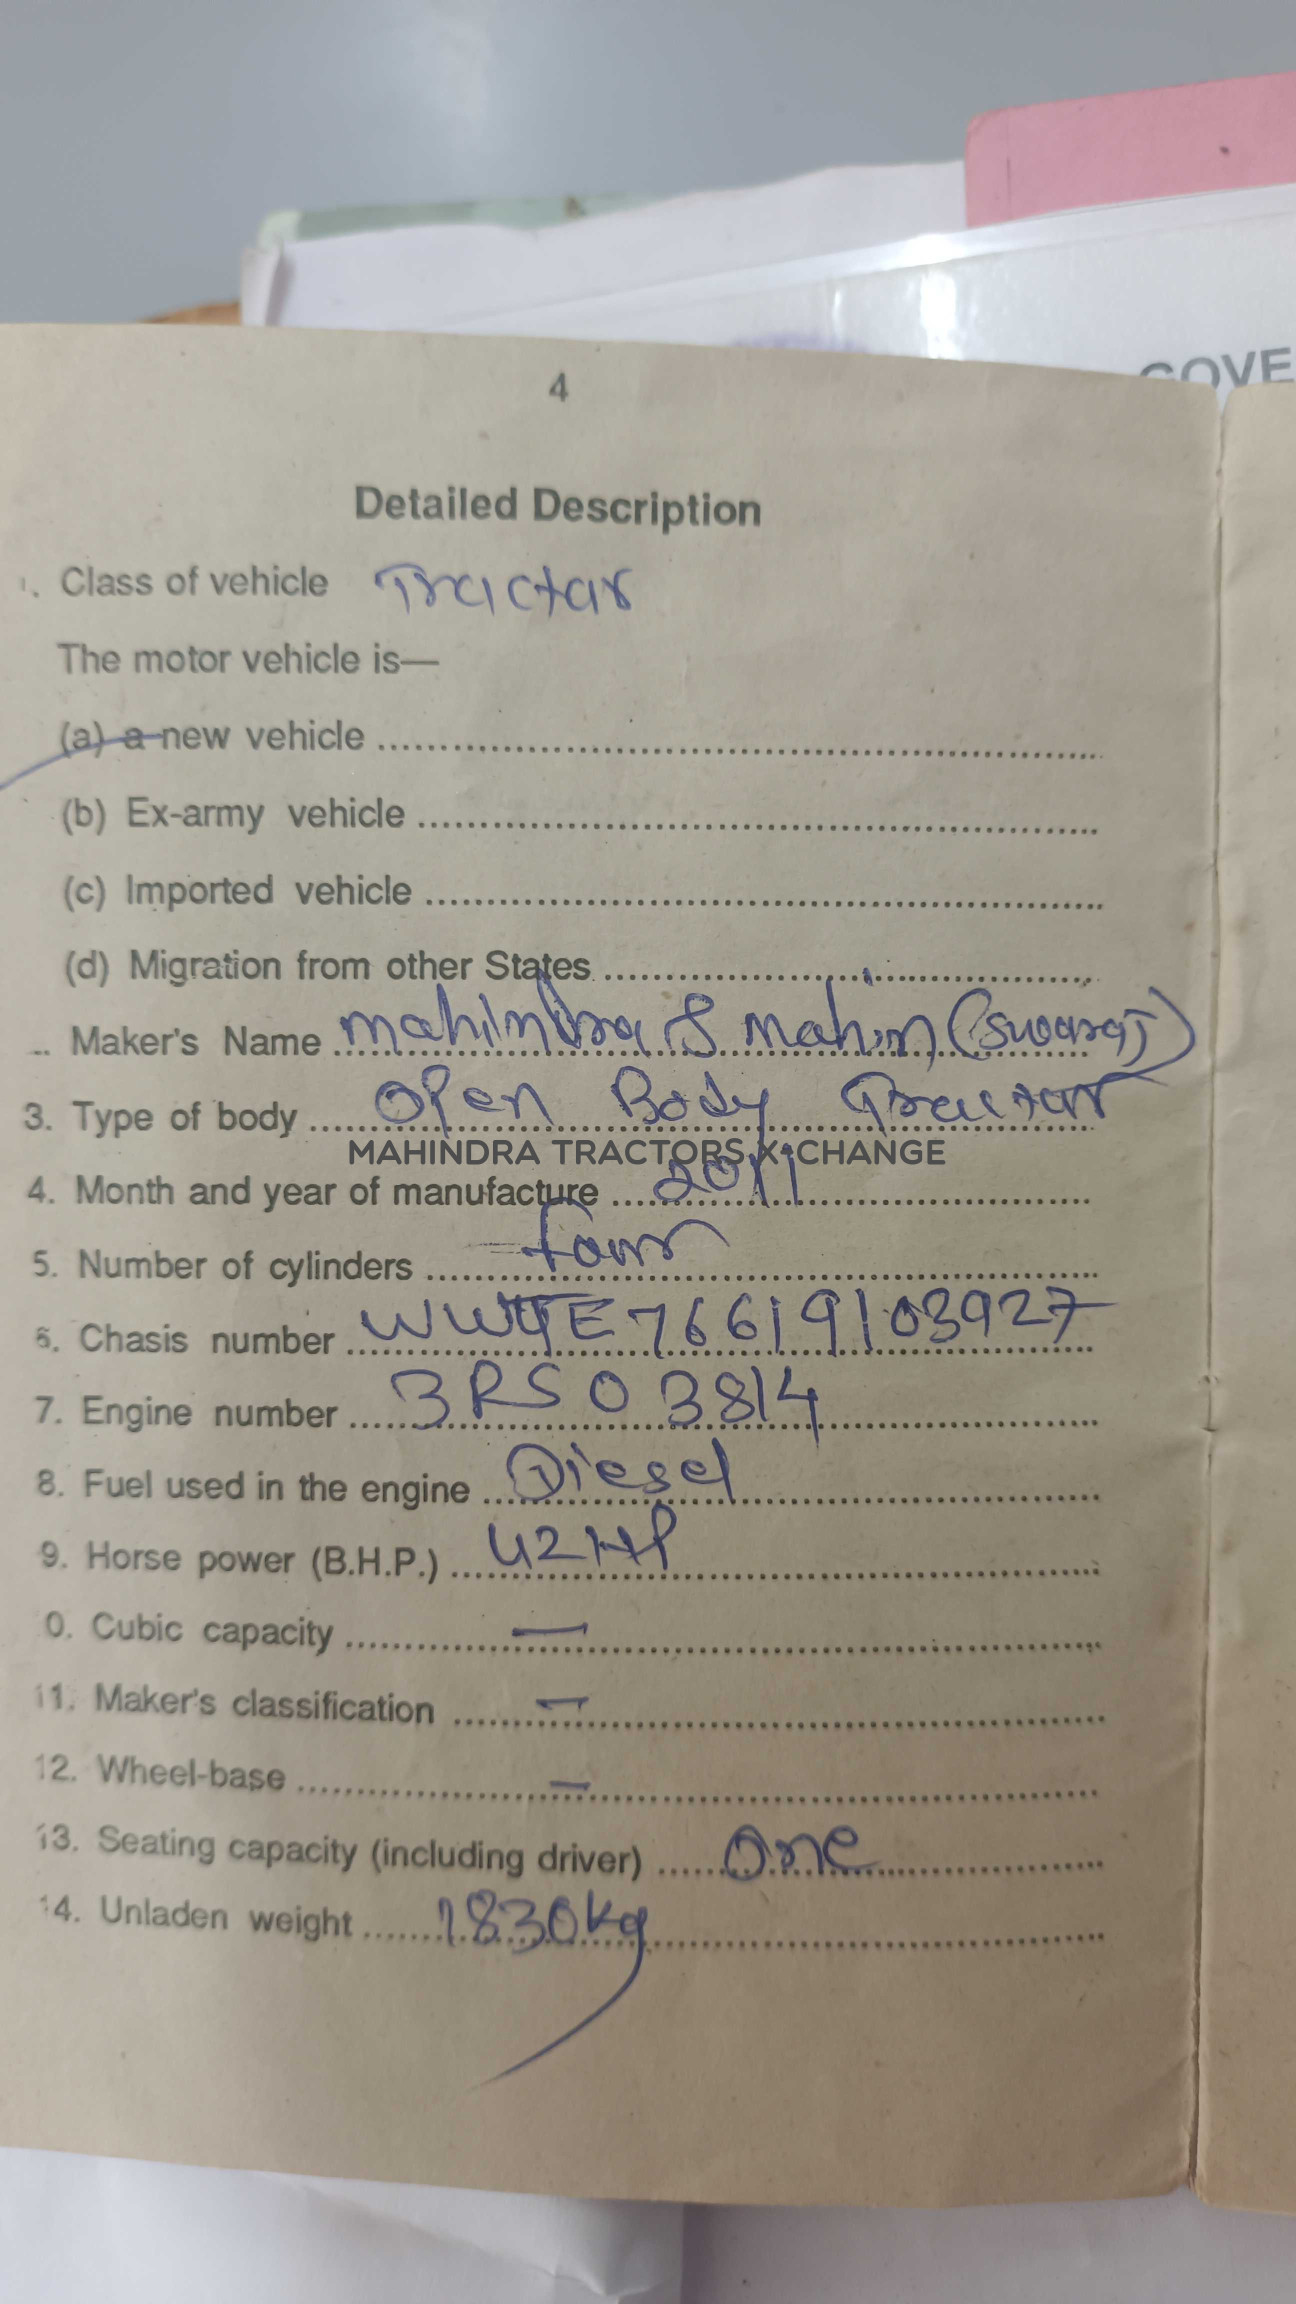 GOVE
4
Detailed Description
1. Class of vehicle Tractar
The motor vehicle is—
(a) a new vehicle
(b) Ex-army vehicle
(c) Imported vehicle
(d) Migration from other States
Maker's Name Mahindra & Mahin (Swaraj)
3. Type of body Open Body Tractor
MAHINDRA TRACTORS X-CHANGE
4. Month and year of manufacture 2011
5. Number of cylinders Four
6. Chasis number 76619103927
7. Engine number 3RS03814
8. Fuel used in the engine Diesel
9. Horse power (B.H.P.) 42HP
0. Cubic capacity —
11. Maker's classification —
12. Wheel-base —
13. Seating capacity (including driver) One
14. Unladen weight 1830kg